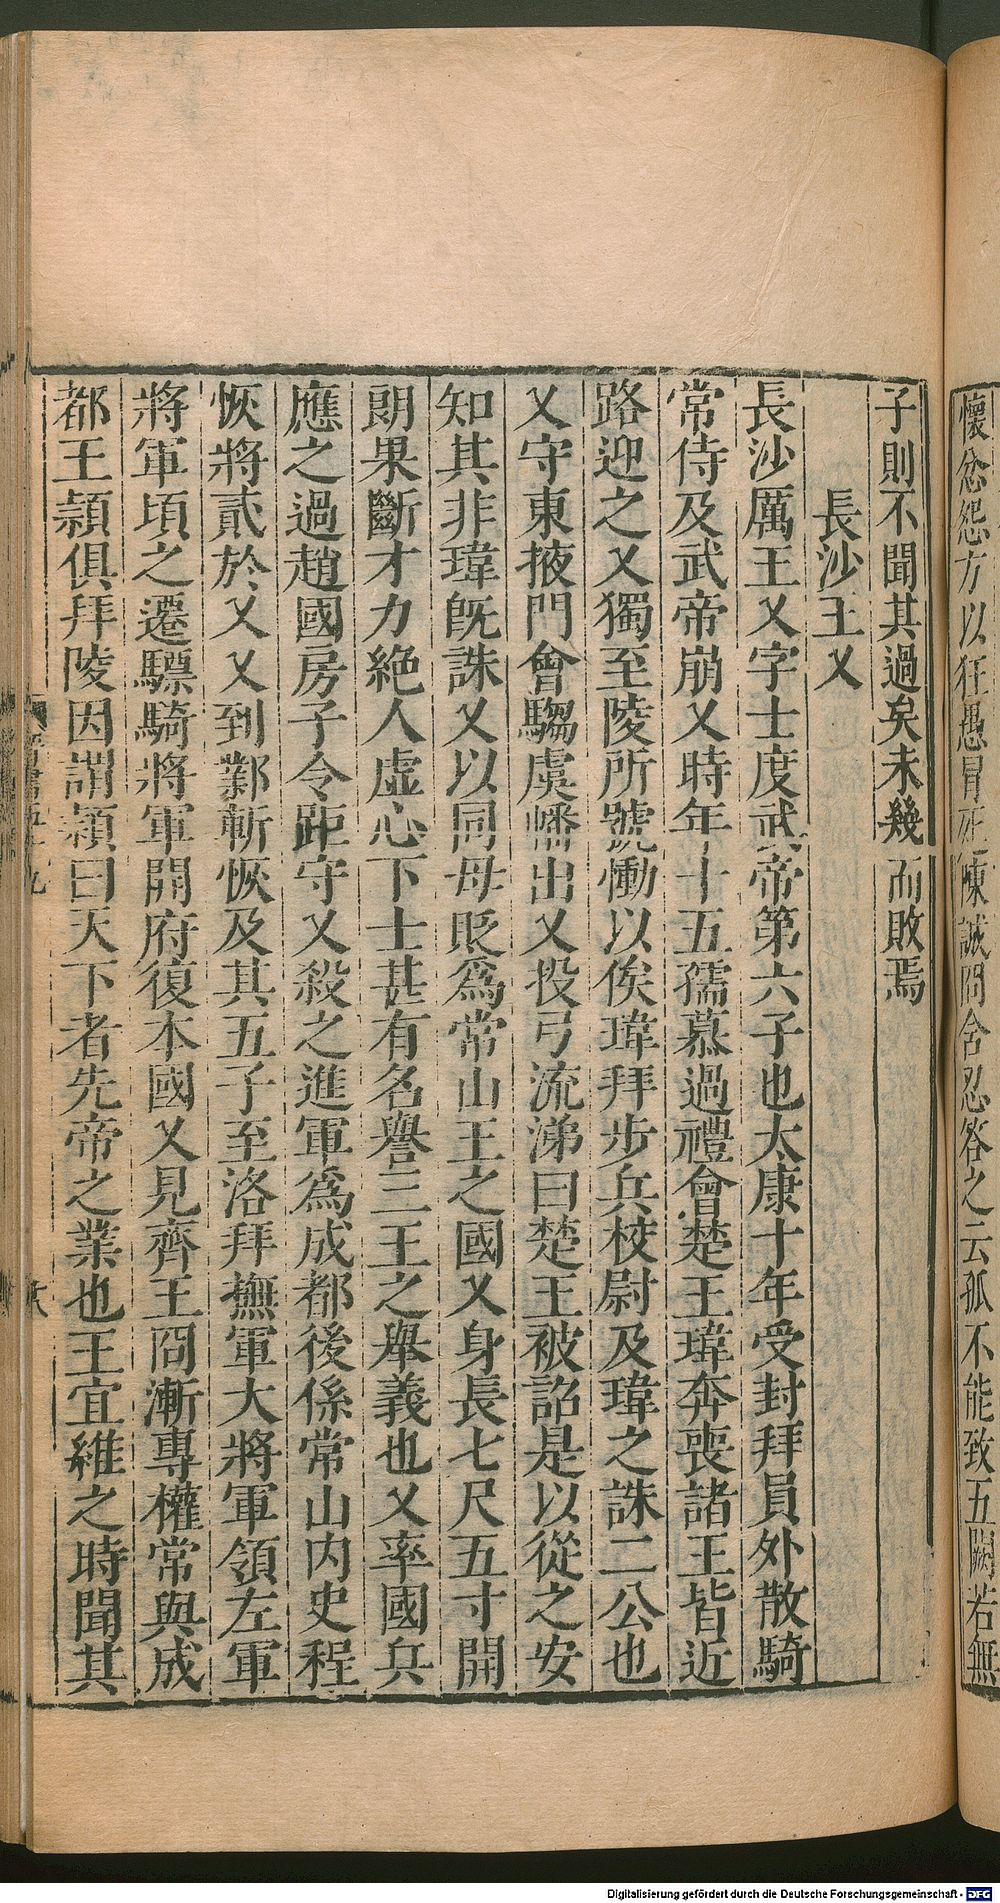 懷忿怨方以狂愚冒死陳誠冏含忍答之云孤不能致五闕若無
子則不聞其過矣未幾而敗焉
長沙王乂
長沙厲王乂字士度武帝第六子也太康十年受封拜員外散騎
常侍及武帝崩乂時年十五孺慕過禮會楚王瑋奔喪諸王皆近
路迎之乂獨至陵所號慟以俟瑋拜步兵校尉及瑋之誅二公也
乂守東掖門會騶虞幡出乂投弓流涕曰楚王被詔是以從之安
知其非瑋旣誅乂以同母貶爲常山王之國乂身長七尺五寸開
朗果斷才力絶人虛心下士甚有名譽三王之舉義也乂率國兵
應之過趙國房子令距守乂殺之進軍爲成都後係常山内史程
恢將貳於乂乂到鄴斬恢及其五子至洛拜撫軍大將軍領左軍
將軍頃之遷驃騎將軍開府復本國乂見齊王冏漸專權常與成
都王頴俱拜陵因謂頴曰天下者先帝之業也王宜維之時聞其
晉書五十九
Digitalisierung gefördert durch die Deutsche Forschungsgemeinschaft - DFG